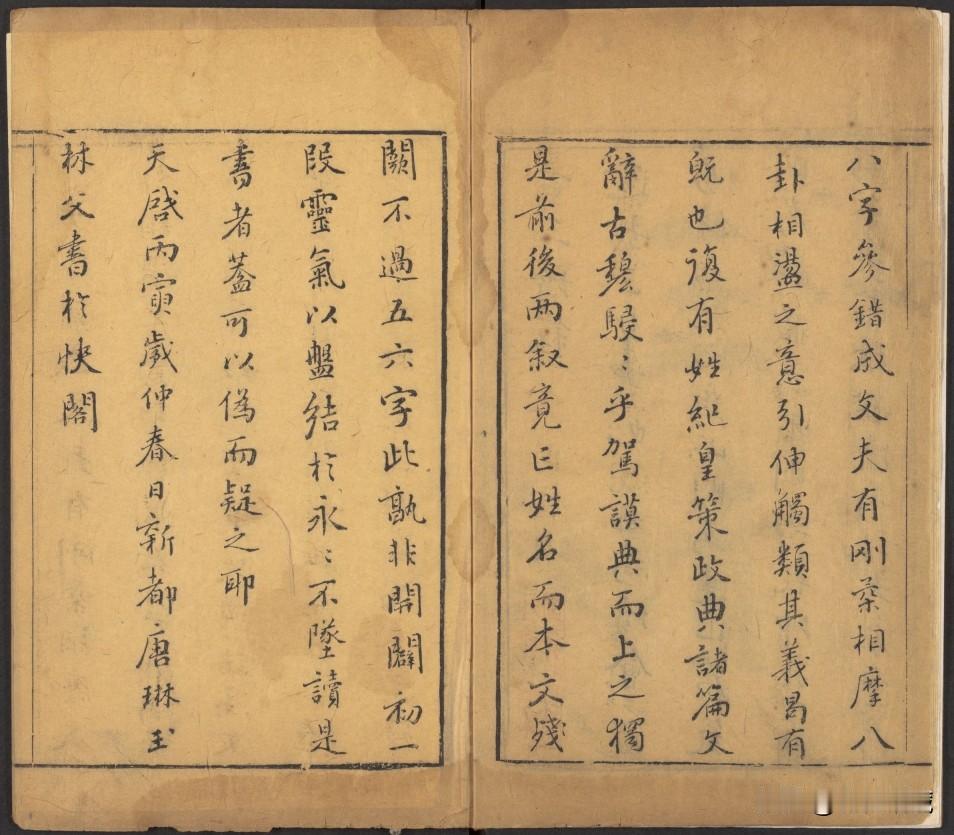 八字參錯成文夫有剛柔相摩八
卦相盪之意引伸觸類其義曷有
既也復有姓紀皇策政典諸篇文
辭古穆駸〻乎駕謨典而上之獨
是前後两叙竟亡姓名而本文殘
闕不過五六字此孰非開闢初一
段靈氣以盤結於永〻不墜讀是
書者葢可以偽而疑之耶
天啓丙寅歲仲春日新都唐琳玉
林父書於快閣